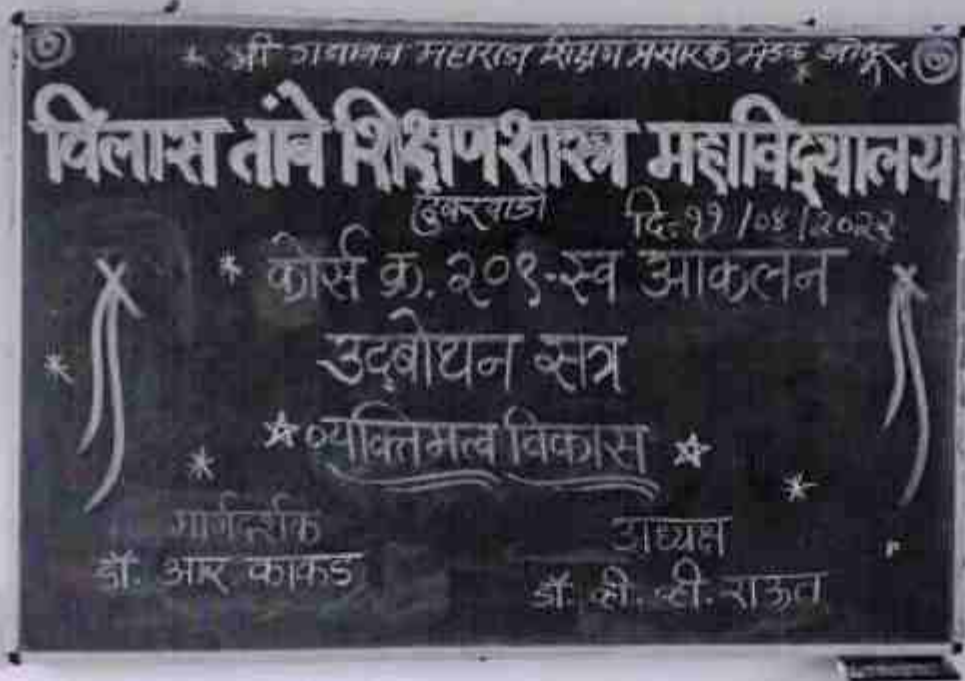 * श्री गजानन महाराज शिक्षण प्रसारक मंडळ ओतूर.
विलास तांबे शिक्षणशास्त्र महाविद्यालय
डुंबरवाडी
दि. ११/०४/२०२२
* कोर्स क्र. २०९-स्व आकलन
उद्‌बोधन सत्र
व्यक्तिमत्व विकास
मार्गदर्शक
डॉ. आर काकडे
अध्यक्ष
डॉ. व्ही. व्ही. राऊत